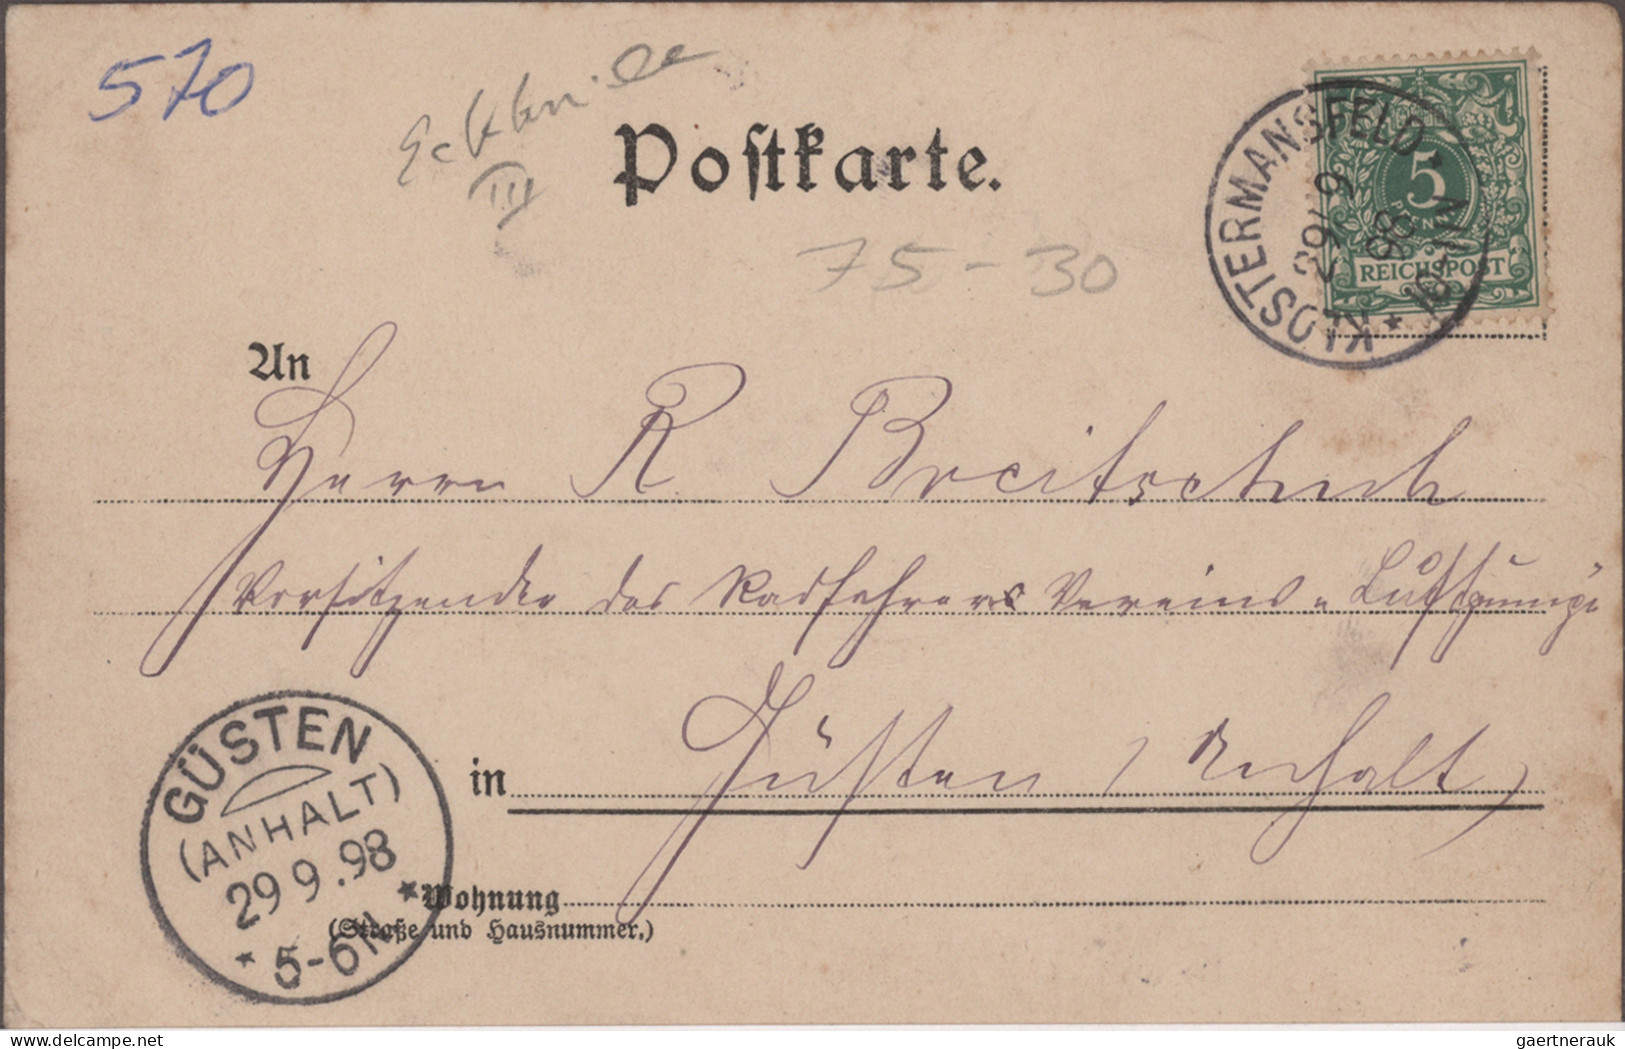 570
III
Postkarte.
75-30
KLOSTERMANSFELD
29/9
98
10-11N
5
PFENNIG
REICHSPOST
An
Herrn R Breitschuh
Vorsitzender des Radfahrer Vereins
in Güsten / Anhalt
GÜSTEN
(ANHALT)
29 9.98
5-6N
Wohnung
(Straße und Hausnummer.)
delcampe.net
gaertnerauk